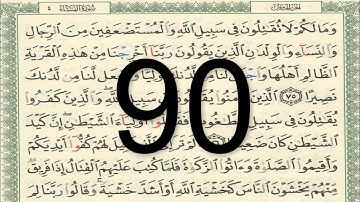 وَمَا لَكُمْ لَا تُقَٰتِلُونَ فِي سَبِيلِ ٱللَّهِ وَٱلْمُسْتَضْعَفِينَ مِنَ ٱلرِّجَالِ
وَٱلنِّسَآءِ وَٱلْوِلْدَٰنِ ٱلَّذِينَ يَقُولُونَ رَبَّنَآ أَخْرِجْنَا مِنْ هَٰذِهِ ٱلْقَرْيَةِ
ٱلظَّالِمِ أَهْلُهَا وَٱجْعَل لَّنَا مِن لَّدُنكَ
نَصِيرًا ٧٥ ٱلَّذِينَ ءَامَنُوا۟ يُقَٰتِلُونَ فِي سَبِيلِ ٱللَّهِ وَٱلَّذِينَ كَفَرُوا۟
يُقَٰتِلُونَ فِي سَبِيلِ ٱلطَّٰغُوتِ أَوْلِيَآءَ ٱلشَّيْطَٰنِ إِنَّ كَيْدَ
ٱلشَّيْطَٰنِ كَانَ ضَعِيفًا لَهُمْ كُفُّوٓا۟ أَيْدِيَكُمْ
وَأَقِيمُوا۟ ٱلصَّلَوٰةَ وَءَاتُوا۟ ٱلزَّكَوٰةَ فَلَمَّا كُتِبَ عَلَيْهِمُ ٱلْقِتَالُ إِذَا فَرِيقٌ
مِّنْهُمْ يَخْشَوْنَ ٱلنَّاسَ كَخَشْيَةِ ٱللَّهِ أَوْ أَشَدَّ خَشْيَةً وَقَالُوا۟ رَبَّنَا لِمَ
90